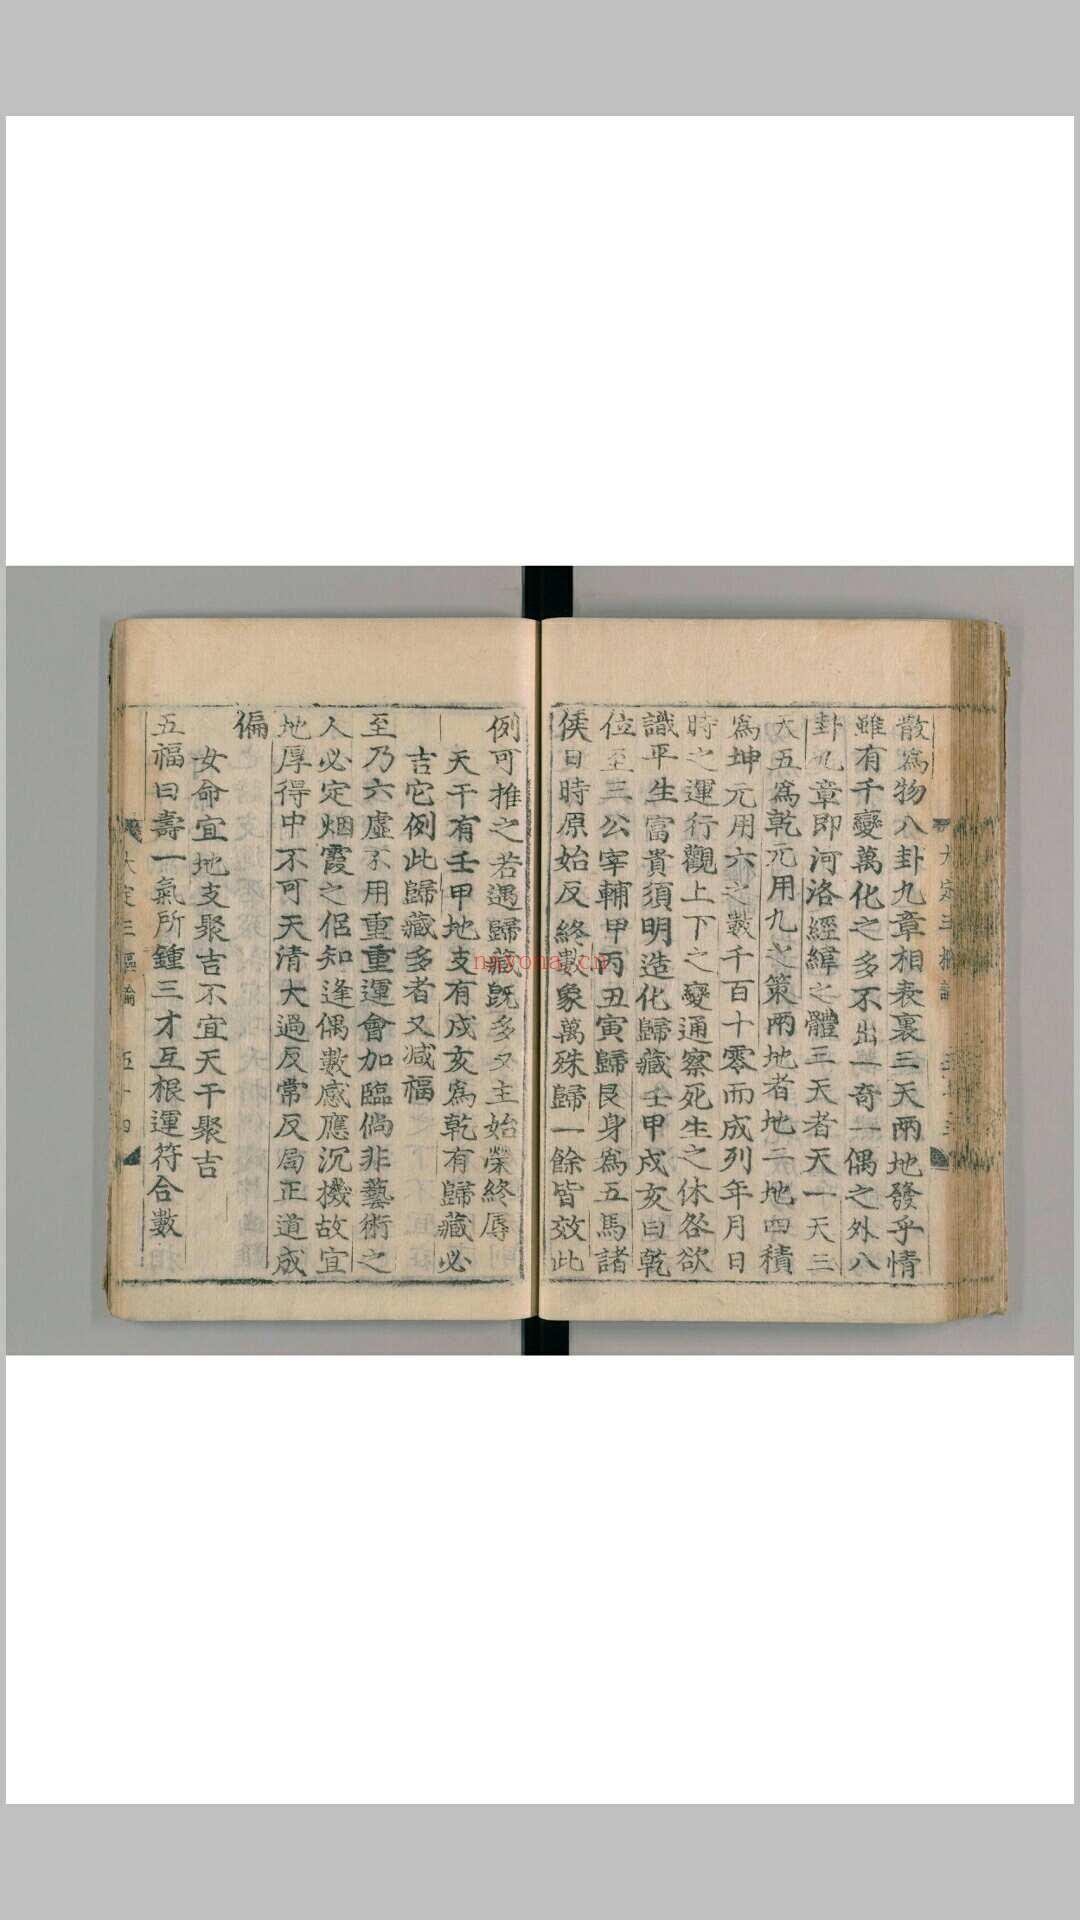 散爲物八卦九章相表裏三天兩地發乎情
雖有千變萬化之多不出一奇一偶之外八
卦九章即河洛經緯之體三天者天一天三
天五爲乾元用九之策兩地者地二地四積
爲坤元用六之數千百十零而成列年月日
時之運行觀上下之變通察死生之休咎欲
識平生富貴須明造化歸藏壬甲戌亥曰乾
位至三公宰輔甲丙丑寅歸艮身爲五馬諸
侯日時原始反終數象萬殊歸一餘皆效此
例可推之若遇歸藏旣多又主始榮終辱
天干有壬甲地支有戌亥爲乾有歸藏必
吉它例此歸藏多者又减福
至乃六虛不用重重運會加臨倘非藝術之
人必定烟霞之侶知逢偶數感應沉機故宜
地厚得中不可天清大過反常反局正道成
偏
女命宜地支聚吉不宜天干聚吉
五福曰壽一氣所鍾三才互根運符合數
大定三樞論 五十四
nayona.cn